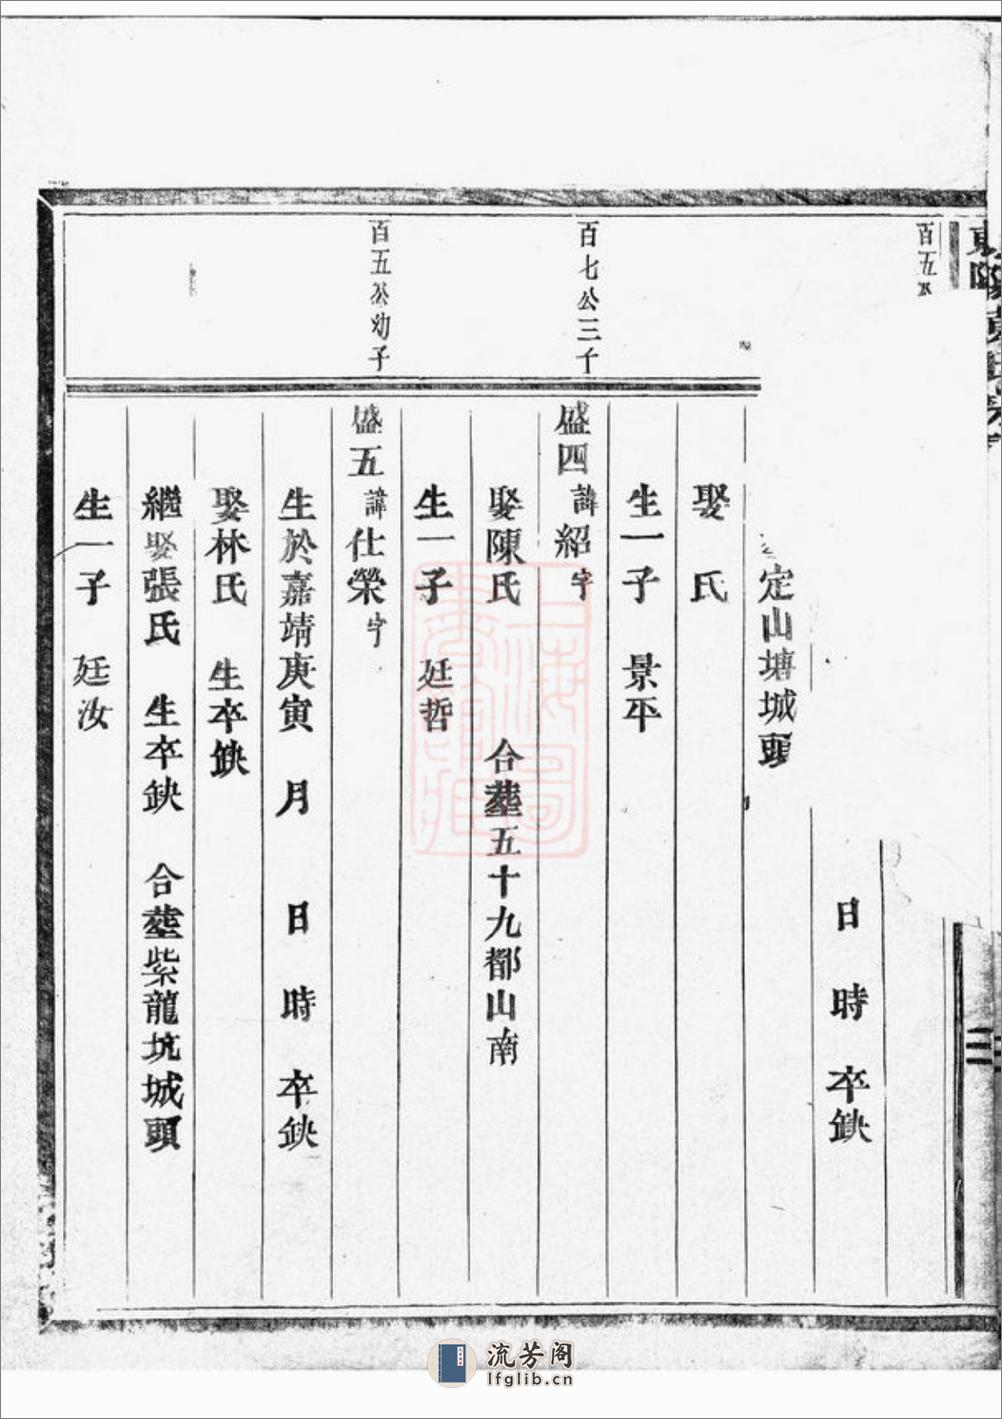 百五
日時卒缺
定山塘城頭
娶氏
生一子景平
百七公三子
盛四諱紹字
娶陳氏合塟五十九都山南
生一子廷哲
百五公幼子
盛五諱仕榮字
生於嘉靖庚寅月日時卒缺
娶林氏生卒缺
繼娶張氏生卒缺合塟紫龍坑城頭
生一子廷汝
流芳阁
lfglib.cn